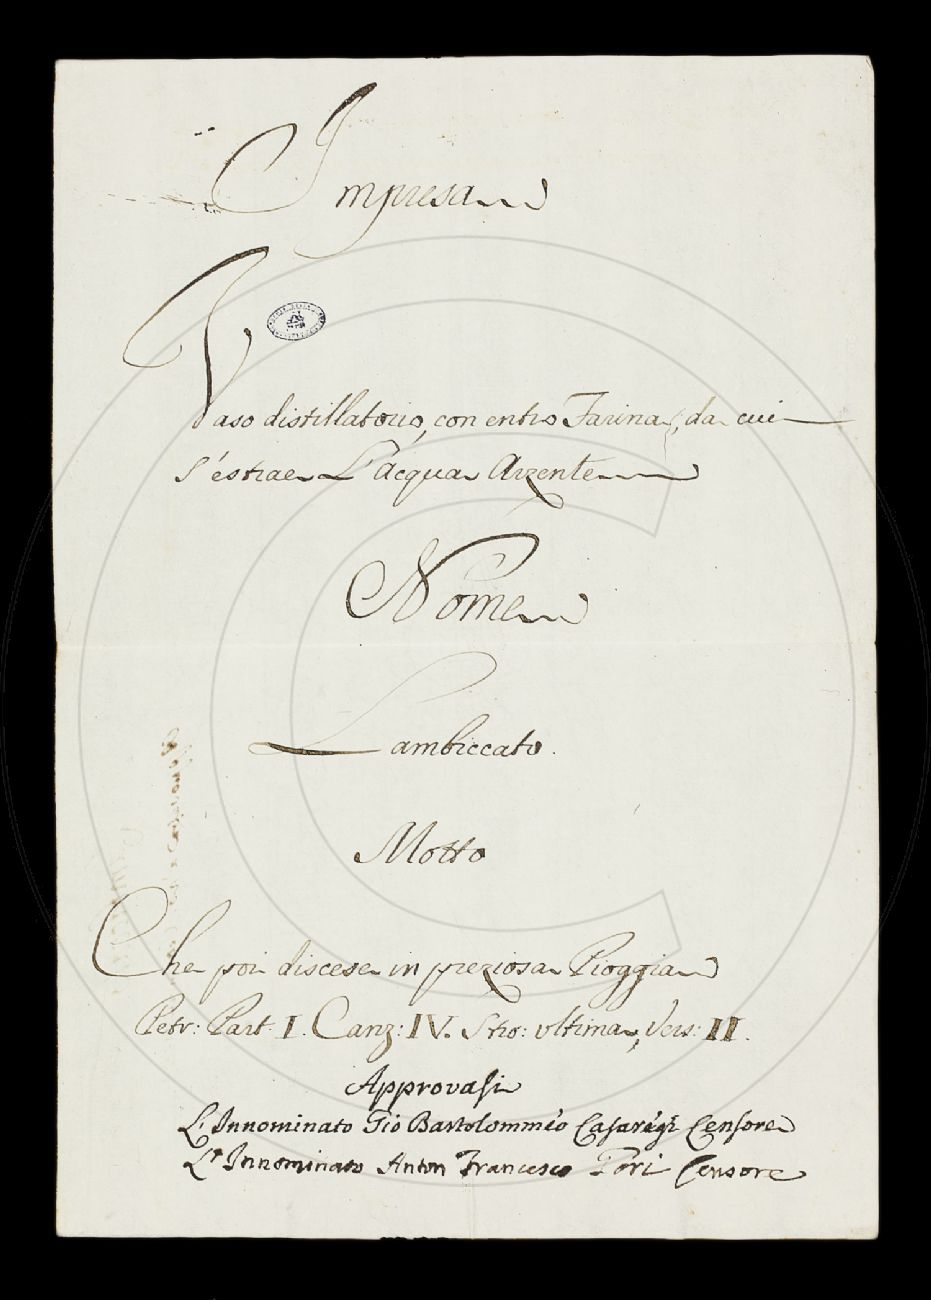 Impresa
Vaso distillatorio, con entro Farina, da cui
s'estrae L'acqua Arzente
Nome
Lambiccato.
Motto
Che poi discese in preziosa Pioggia
Petr: Part: I. Canz: IV. Stro: ultima, Vers: II.
Approvasi
L'Innominato Gio Bartolommeo Casaregi Censore
L'Innominato Anton Francesco Censore